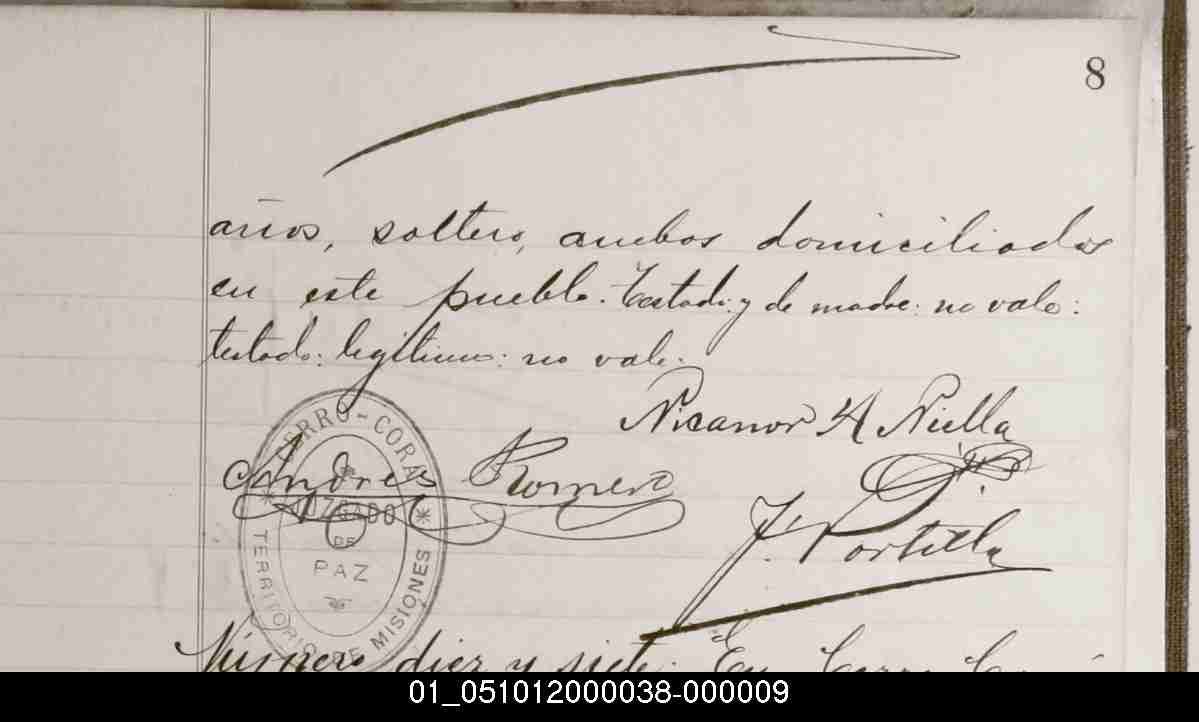 8
años, soltero, ambos domiciliados
en este pueblo. Testado: y de madre: no vale:
testado: legítimo: no vale.
Nicanor A Niella
Andres Romero
J. Portilla
CERRO-CORA
JUZGADO
DE
PAZ
TERRITORIO DE MISIONES
Número diez y siete. En Cerro Corá
01_051012000038-000009